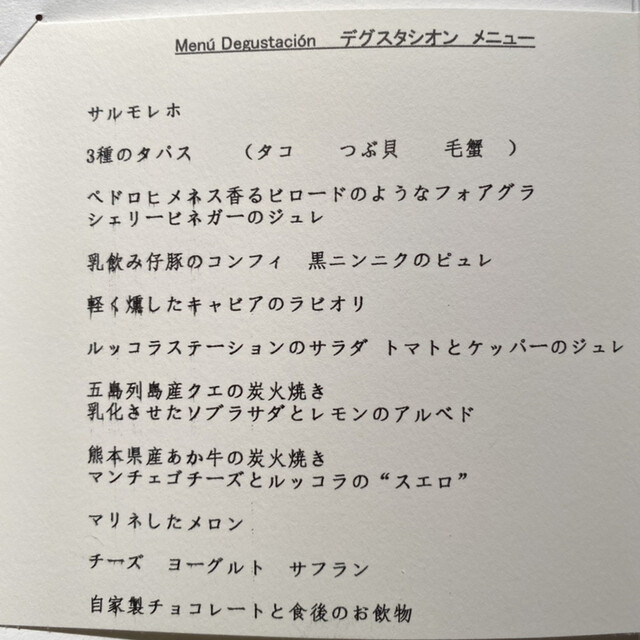 Menú Degustación デグスタシオン メニュー
サルモレホ
3種のタパス (タコ つぶ貝 毛蟹 )
ペドロヒメネス香るビロードのようなフォアグラ
シェリービネガーのジュレ
乳飲み仔豚のコンフィ 黒ニンニクのピュレ
軽く燻したキャビアのラビオリ
ルッコラステーションのサラダ トマトとケッパーのジュレ
五島列島産クエの炭火焼き
乳化させたソブラサダとレモンのアルベド
熊本県産あか牛の炭火焼き
マンチェゴチーズとルッコラの“スエロ”
マリネしたメロン
チーズ ヨーグルト サフラン
自家製チョコレートと食後のお飲物